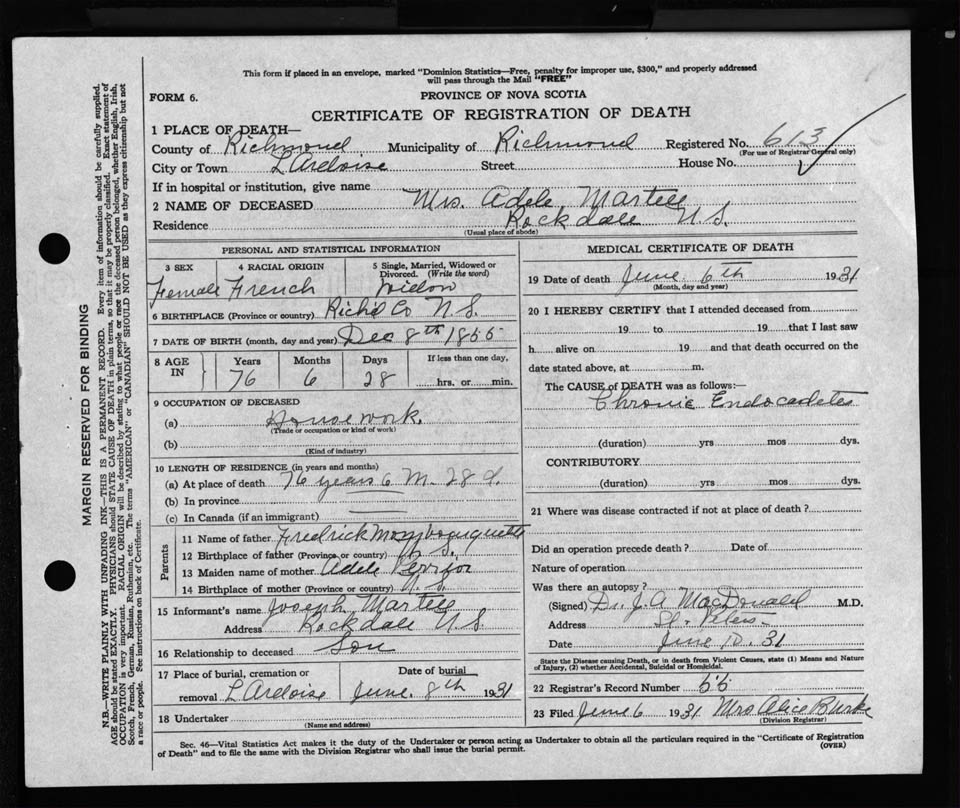 This form if placed in an envelope, marked "Dominion Statistics—Free, penalty for improper use, $300," and properly addressed
will pass through the Mail "FREE"
FORM 6.
PROVINCE OF NOVA SCOTIA
CERTIFICATE OF REGISTRATION OF DEATH
1 PLACE OF DEATH—
County of Richmond Municipality of Richmond Registered No. 613
(For use of Registrar General only)
City or Town L'Ardoise Street House No.
If in hospital or institution, give name
2 NAME OF DECEASED Mrs. Adele Martell
Residence Rockdale N.S.
(Usual place of abode)
PERSONAL AND STATISTICAL INFORMATION
3 SEX 4 RACIAL ORIGIN 5 Single, Married, Widowed or Divorced. (Write the word)
Female French Widow
6 BIRTHPLACE (Province or country) Rich'd Co N.S.
7 DATE OF BIRTH (month, day and year) Dec 8th 1855
8 AGE IN Years Months Days If less than one day,
76 6 28 hrs. or min.
9 OCCUPATION OF DECEASED
(a) Housework.
(Trade or occupation or kind of work)
(b)
(Kind of industry)
10 LENGTH OF RESIDENCE (in years and months)
(a) At place of death 76 years 6 M. 28 d.
(b) In province
(c) In Canada (if an immigrant)
Parents
11 Name of father Fredrick Mombouquette
12 Birthplace of father (Province or country) N.S.
13 Maiden name of mother Adele
14 Birthplace of mother (Province or country) N.S.
15 Informant's name Joseph Martell
Address Rockdale N.S
16 Relationship to deceased Son
17 Place of burial, cremation or removal L'Ardoise Date of burial June 8th 1931
18 Undertaker
(Name and address)
MEDICAL CERTIFICATE OF DEATH
19 Date of death June 6th 1931
(Month, day and year)
20 I HEREBY CERTIFY that I attended deceased from
19 to 19 that I last saw
h alive on 19 and that death occurred on the
date stated above, at m.
The CAUSE of DEATH was as follows:—
Chronic Endocadetes
(duration) yrs mos dys.
CONTRIBUTORY
(duration) yrs mos dys.
21 Where was disease contracted if not at place of death?
Did an operation precede death? Date of
Nature of operation
Was there an autopsy?
(Signed) Dr. J. A. MacDonald M.D.
Address St. Peters
Date June 10. 31
State the Disease causing Death, or in death from Violent Causes, state (1) Means and Nature
of Injury, (2) whether Accidental, Suicidal or Homicidal.
22 Registrar's Record Number
23 Filed June 6 1931 Mrs Alice Burke
(Division Registrar)
Sec. 46—Vital Statistics Act makes it the duty of the Undertaker or person acting as Undertaker to obtain all the particulars required in the "Certificate of Registration
of Death" and to file the same with the Division Registrar who shall issue the burial permit.
(OVER)
MARGIN RESERVED FOR BINDING
N.B.—WRITE PLAINLY WITH UNFADING INK—THIS IS A PERMANENT RECORD. Every item of information should be carefully supplied.
AGE should be stated EXACTLY. PHYSICIANS should STATE CAUSE OF DEATH in plain terms, so that it may be properly classified. Exact statement of
OCCUPATION is very important. RACIAL ORIGIN will be described by stating to what people or race the deceased person belonged, whether English, Irish,
Scotch, French, German, Russian, Ruthenian, etc. The terms "AMERICAN" or "CANADIAN" SHOULD NOT BE USED as they express citizenship but not
a race or people. See instructions on back of Certificate.